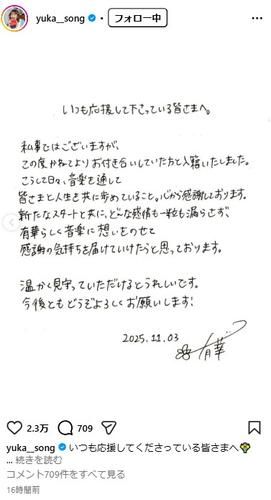 yuka__song
フォロー中
いつも応援して下さっている皆さまへ。
私事ではございますが、
この度かねてよりお付き合いしていた方と入籍いたしました。
こうして日々、音楽を通して
皆さまと人生を共に歩めていること。心から感謝しております。
新たなスタートと共に、どんな感情も一粒も漏らさず、
有華らしく音楽に想いをのせて
感謝の気持ちを届けていけたらと思っております。
温かく見守っていただけるとうれしいです。
今後ともどうぞよろしくお願いします!
2025.11.03
有華
2.3万 709
yuka__song いつも応援してくださっている皆さまへ
... 続きを読む
コメント709件をすべて見る
16時間前